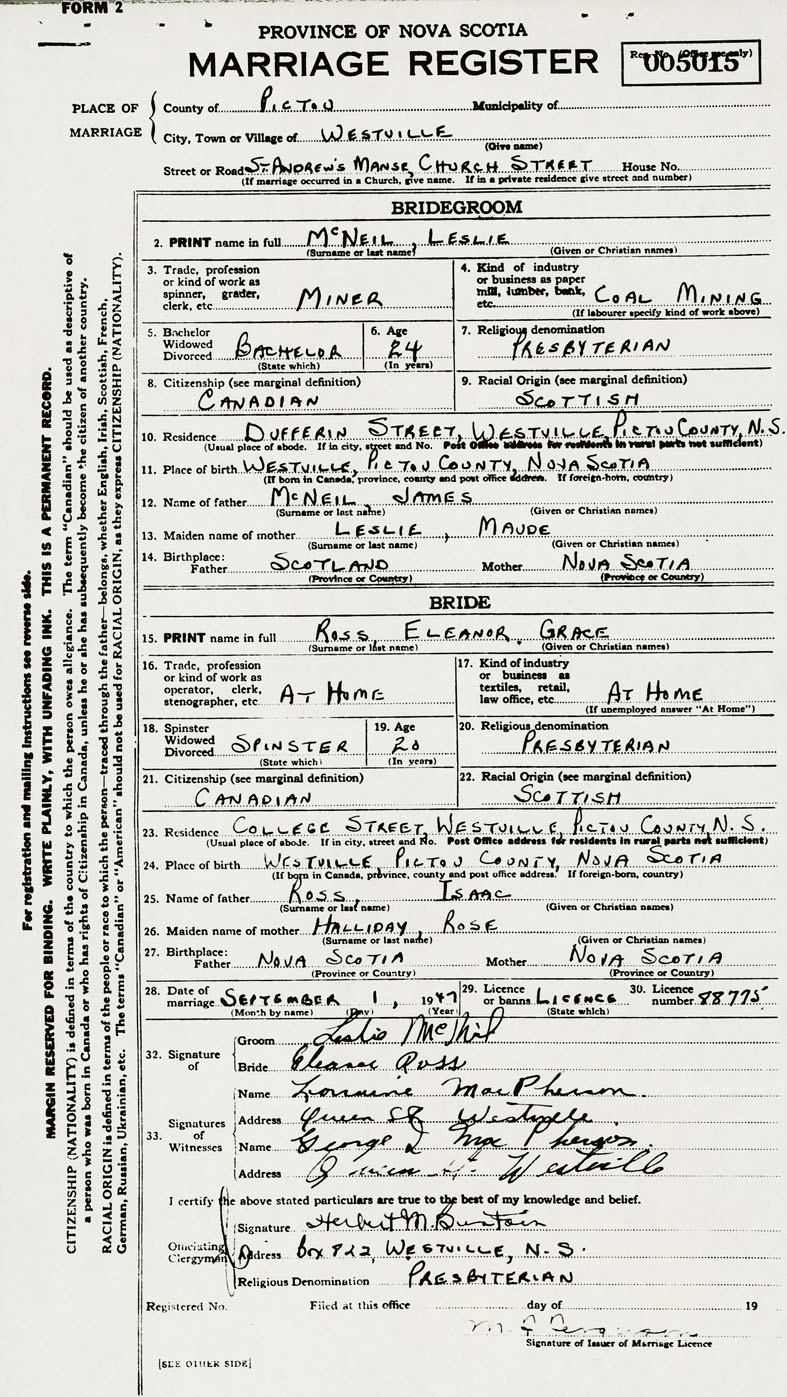 FORM 2
PROVINCE OF NOVA SCOTIA
MARRIAGE REGISTER
005015
PLACE OF MARRIAGE
County of PICTOU Municipality of
City, Town or Village of WESTVILLE
(Give name)
Street or Road ST. ANDREW'S MANSE, CHURCH STREET House No.
(If marriage occurred in a Church, give name. If in a private residence give street and number)
BRIDEGROOM
2. PRINT name in full McNEIL, LESLIE
(Surname or last name) (Given or Christian names)
3. Trade, profession or kind of work as spinner, grader, clerk, etc. MINER
4. Kind of industry or business as paper mill, lumber, bank, etc. COAL MINING
(If labourer specify kind of work above)
5. Bachelor Widowed Divorced BACHELOR
(State which)
6. Age 24
(In years)
7. Religious denomination PRESBYTERIAN
8. Citizenship (see marginal definition)
CANADIAN
9. Racial Origin (see marginal definition)
SCOTTISH
10. Residence DUFFERIN STREET, WESTVILLE, PICTOU COUNTY, N.S.
(Usual place of abode. If in city, street and No. Post Office address for residents in rural parts not sufficient)
11. Place of birth WESTVILLE, PICTOU COUNTY, NOVA SCOTIA
(If born in Canada, province, county and post office address. If foreign-born, country)
12. Name of father McNEIL, JAMES
(Surname or last name) (Given or Christian names)
13. Maiden name of mother LESLIE, MAUDE
(Surname or last name) (Given or Christian names)
14. Birthplace: Father SCOTLAND Mother NOVA SCOTIA
(Province or Country) (Province or Country)
BRIDE
15. PRINT name in full ROSS, ELEANOR, GRACE
(Surname or last name) (Given or Christian names)
16. Trade, profession or kind of work as operator, clerk, stenographer, etc. AT HOME
17. Kind of industry or business as textiles, retail, law office, etc. AT HOME
(If unemployed answer "At Home")
18. Spinster Widowed Divorced SPINSTER
(State which)
19. Age 20
(In years)
20. Religious denomination PRESBYTERIAN
21. Citizenship (see marginal definition)
CANADIAN
22. Racial Origin (see marginal definition)
SCOTTISH
23. Residence COLLEGE STREET, WESTVILLE, PICTOU COUNTY, N.S.
(Usual place of abode. If in city, street and No. Post Office address for residents in rural parts not sufficient)
24. Place of birth WESTVILLE, PICTOU COUNTY, NOVA SCOTIA
(If born in Canada, province, county and post office address. If foreign-born, country)
25. Name of father ROSS, ISAAC
(Surname or last name) (Given or Christian names)
26. Maiden name of mother HALLIDAY, ROSE
(Surname or last name) (Given or Christian names)
27. Birthplace: Father NOVA SCOTIA Mother NOVA SCOTIA
(Province or Country) (Province or Country)
28. Date of marriage SEPTEMBER 1, 1947
(Month by name) (Day) (Year)
29. Licence or banns LICENCE
(State which)
30. Licence number 88775
32. Signature of
Groom Leslie McNeil
Bride Eleanor Ross
33. Signatures of Witnesses
Name Lorraine MacPherson.
Address Queen St Westville.
Name George I MacPherson.
Address Queen St. Westville
I certify the above stated particulars are true to the best of my knowledge and belief.
Officiating Clergyman
Signature Herbert M. Buntain
Address Box 822, WESTVILLE, N.S.
Religious Denomination PRESBYTERIAN
Registered No. Filed at this office day of 19
Signature of Issuer of Marriage Licence
[SEE OTHER SIDE]
For registration and mailing instructions see reverse side.
MARGIN RESERVED FOR BINDING. WRITE PLAINLY, WITH UNFADING INK. THIS IS A PERMANENT RECORD.
CITIZENSHIP (NATIONALITY) is defined in terms of the country to which the person owes allegiance. The term "Canadian" should be used as descriptive of
a person who was born in Canada or who has rights of Citizenship in Canada, unless he or she has subsequently become the citizen of another country.
RACIAL ORIGIN is defined in terms of the people or race to which the person—traced through the father—belongs, whether English, Irish, Scottish, French,
German, Russian, Ukrainian, etc. The terms "Canadian" or "American" should not be used for RACIAL ORIGIN, as they express CITIZENSHIP (NATIONALITY).